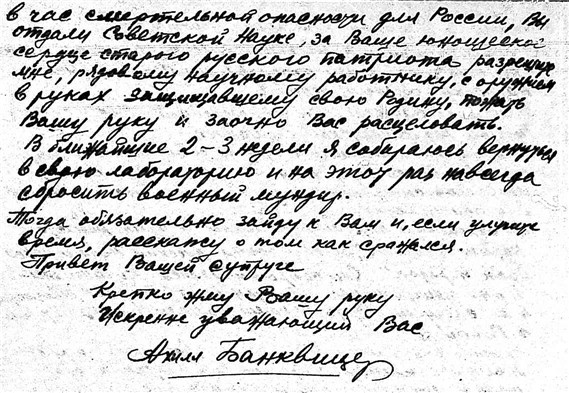 в час смертельной опасности для России, Вы
отдали Советской Науке, за Ваше юношеское
сердце старого русского патриота разрешите
мне, рядовому научному работнику, с оружием
в руках защищавшему свою Родину, пожать
Вашу руку и заочно Вас расцеловать.
В ближайшие 2-3 недели я собираюсь вернуться
в свою лабораторию и на этот раз навсегда
сбросить военный мундир.
Тогда обязательно зайду к Вам и, если улучите
время, расскажу о том как сражался.
Привет Вашей супруге
Крепко жму Вашу руку
Искренне уважающий Вас